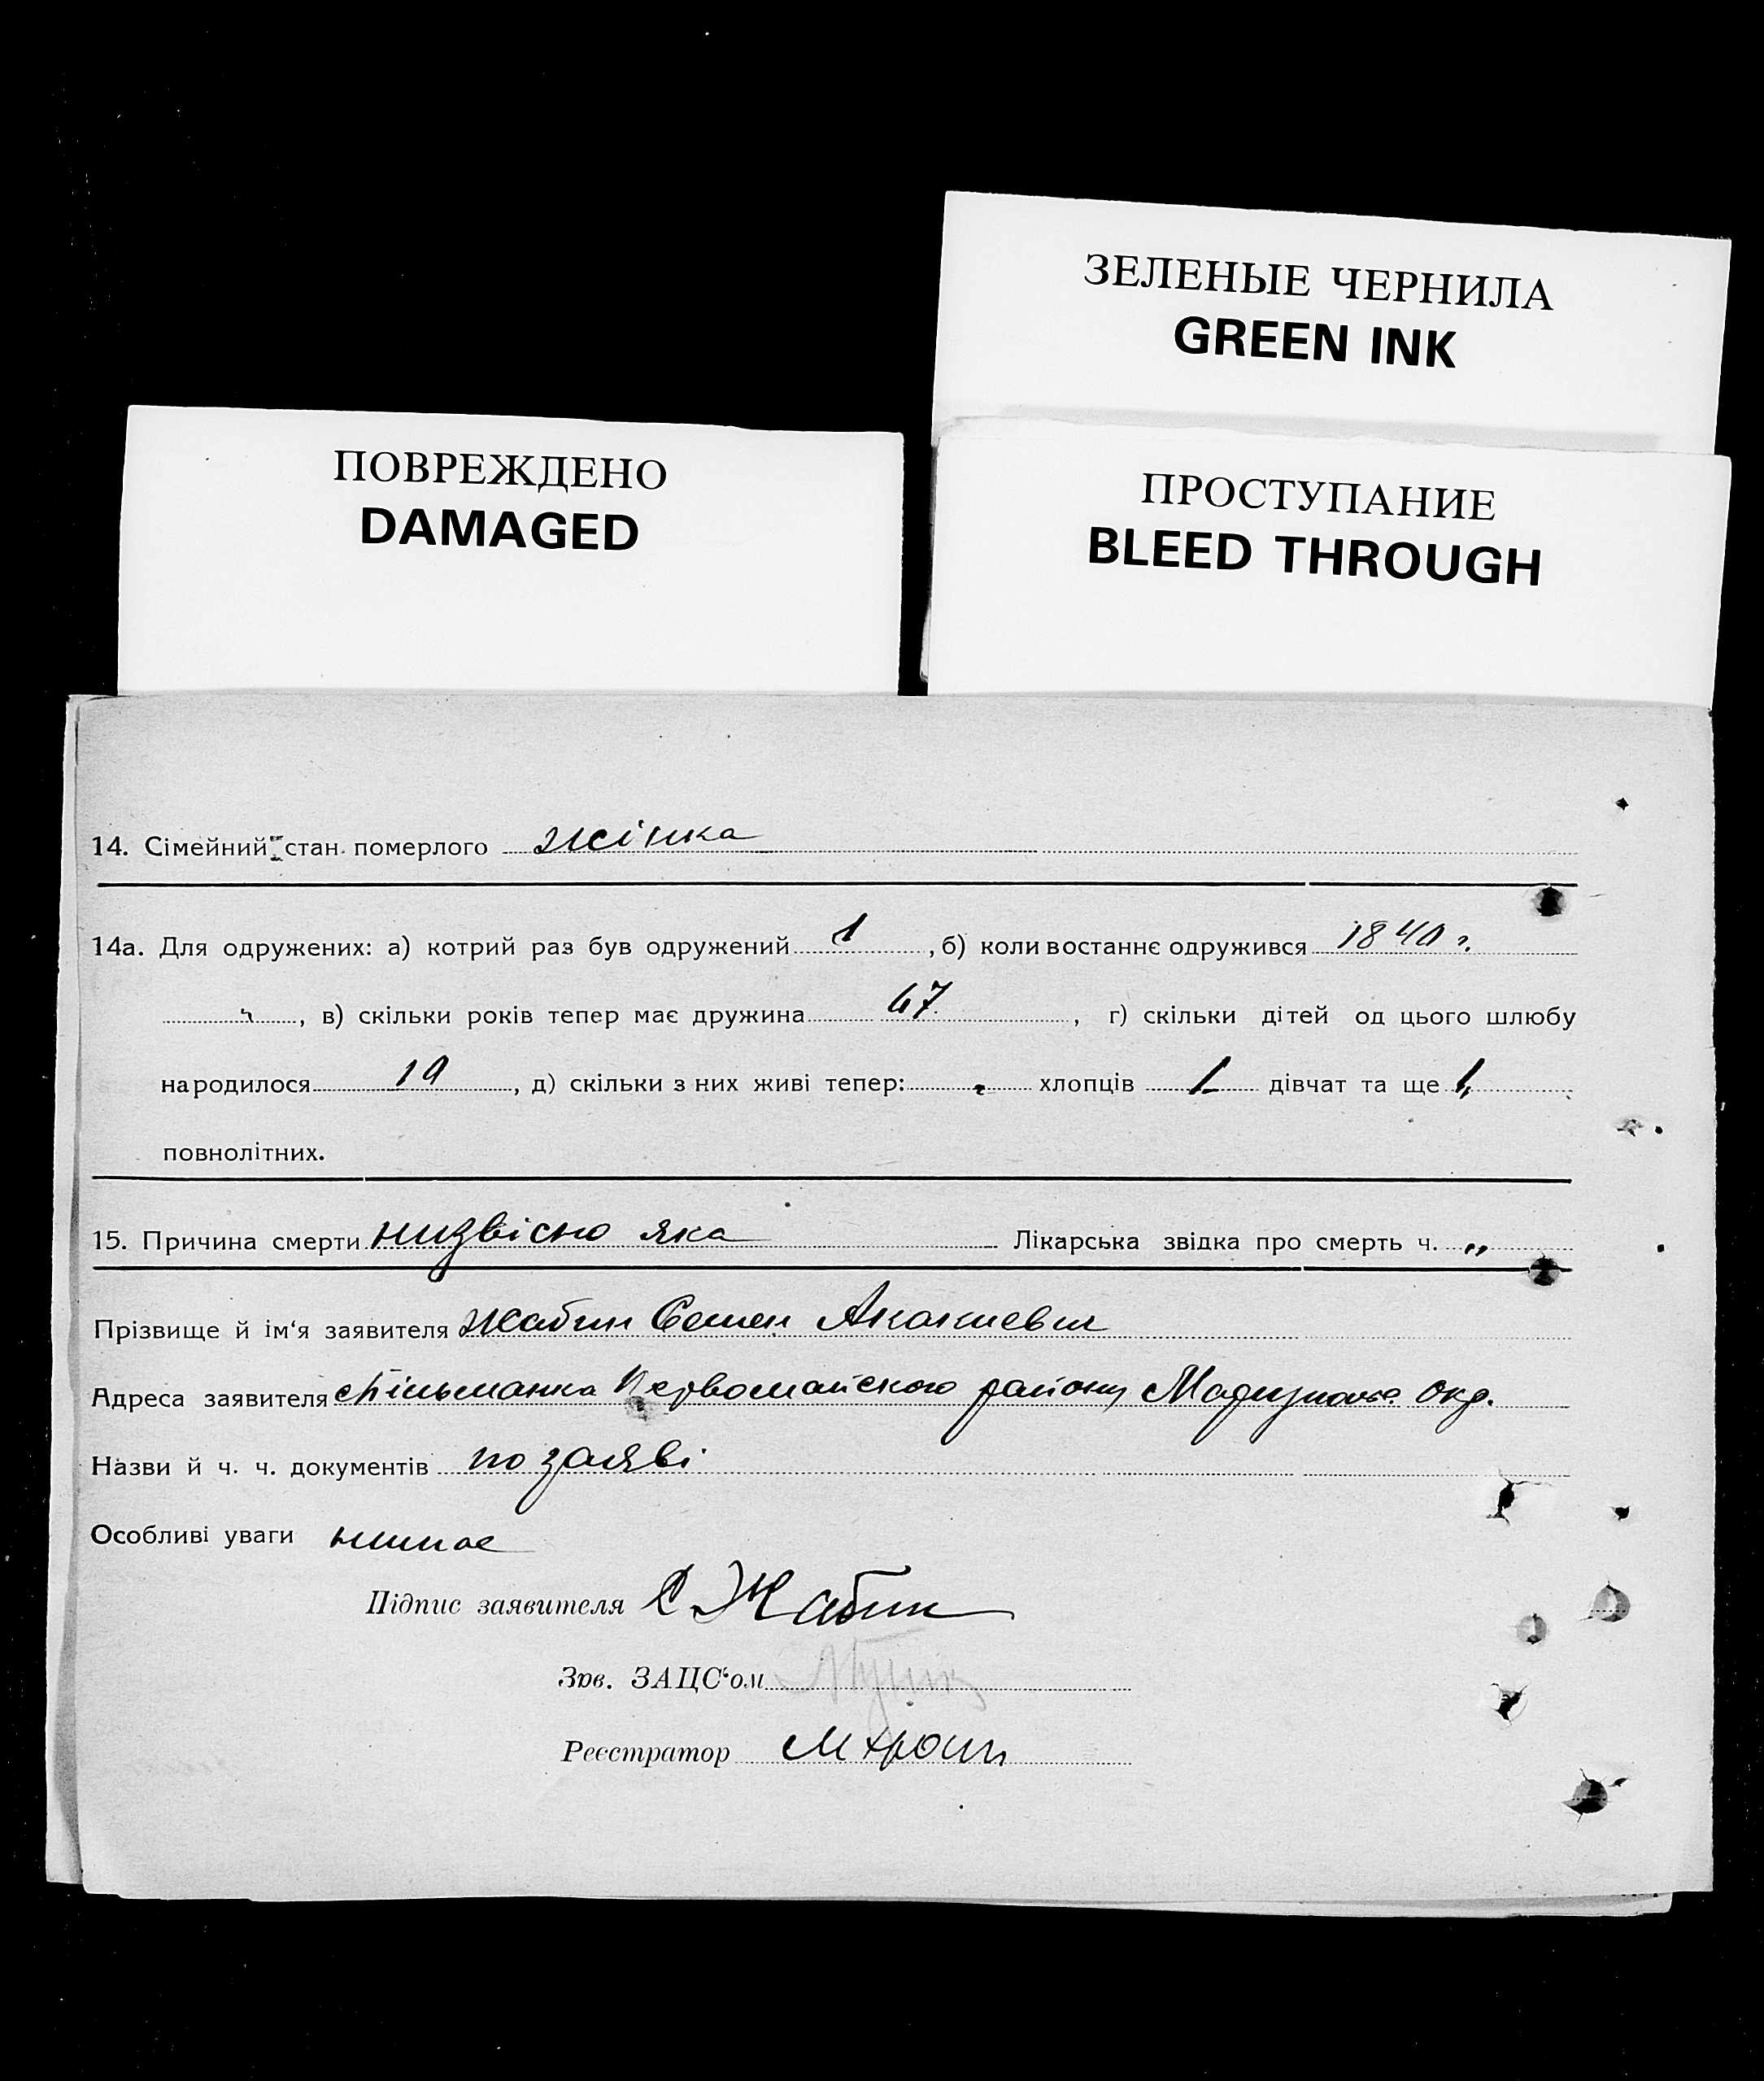 ЗЕЛЕНЫЕ ЧЕРНИЛА
GREEN INK
ПОВРЕЖДЕНО
DAMAGED
ПРОСТУПАНИЕ
BLEED THROUGH
14. Сімейний стан померлого жінка
14а. Для одружених: а) котрий раз був одружений 1, б) коли востаннє одружився 1840 г.
, в) скільки років тепер має дружина 67, г) скільки дітей од цього шлюбу
народилося 10, д) скільки з них живі тепер: хлопців 1 дівчат та ще 1
повнолітних.
15. Причина смерти низвісно яка Лікарська звідка про смерть ч. „
Прізвище й ім‘я заявителя Жабин Семен Акакиевич
Адреса заявителя Первомайского району Окр.
Назви й ч. ч. документів по заяві
Особливі уваги нимае
Підпис заявителя С Жабин
Зав. ЗАЦС‘ом
Реєстратор